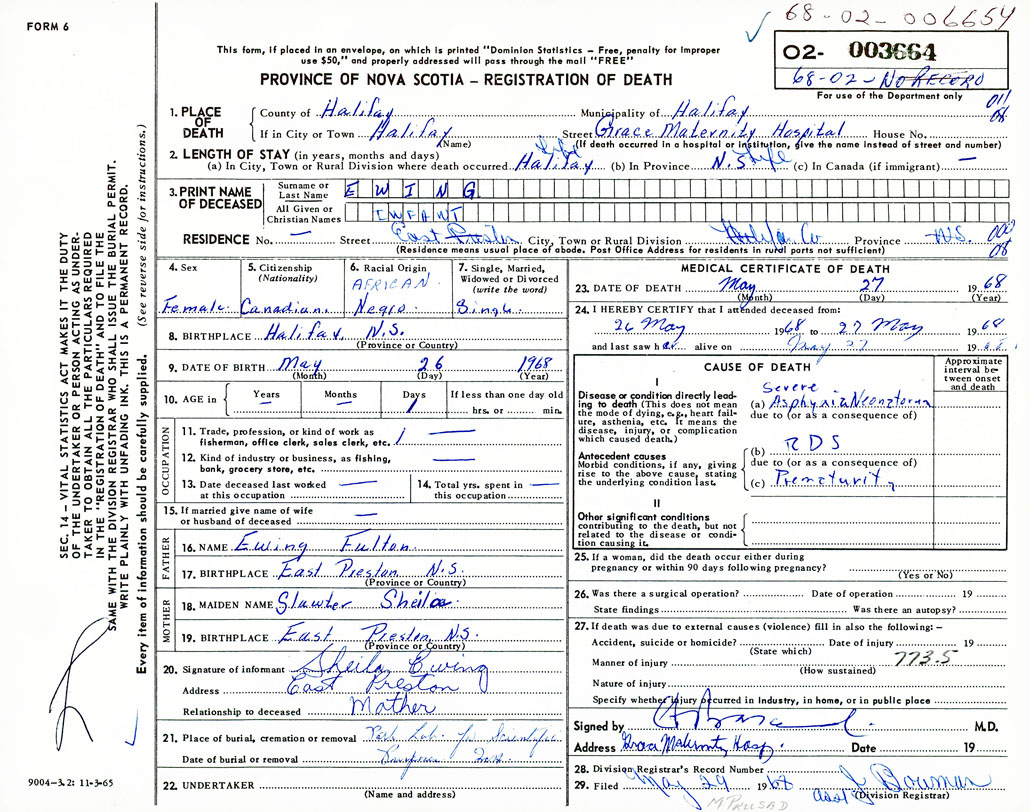 FORM 6
68-02-006654
This form, if placed in an envelope, on which is printed "Dominion Statistics – Free, penalty for improper
use $50," and properly addressed will pass through the mail "FREE"
02- 003664
68-02- NO RECORD
For use of the Department only
PROVINCE OF NOVA SCOTIA – REGISTRATION OF DEATH
1. PLACE OF DEATH
County of Halifax Municipality of Halifax 011
If in City or Town Halifax Street Grace Maternity Hospital House No. 08
(Name) (If death occurred in a hospital or institution, give the name instead of street and number)
2. LENGTH OF STAY (in years, months and days) Life
(a) In City, Town or Rural Division where death occurred Halifax (b) In Province N.S. Life (c) In Canada (if immigrant) —
3. PRINT NAME OF DECEASED
Surname or Last Name EWING
All Given or Christian Names INFANT
RESIDENCE No. — Street East Preston City, Town or Rural Division Halifax Co Province N.S.
08
(Residence means usual place of abode. Post Office Address for residents in rural parts not sufficient)
4. Sex Female
5. Citizenship (Nationality) Canadian
6. Racial Origin AFRICAN Negro
7. Single, Married, Widowed or Divorced (write the word) Single
8. BIRTHPLACE Halifax, N.S.
(Province or Country)
9. DATE OF BIRTH May 26 1968
(Month) (Day) (Year)
10. AGE in Years — Months — Days 1 If less than one day old
hrs. or min.
OCCUPATION
11. Trade, profession, or kind of work as
fisherman, office clerk, sales clerk, etc. —
12. Kind of industry or business, as fishing,
bank, grocery store, etc. —
13. Date deceased last worked
at this occupation —
14. Total yrs. spent in
this occupation —
15. If married give name of wife
or husband of deceased —
FATHER
16. NAME Ewing Fulton
17. BIRTHPLACE East Preston N.S.
(Province or Country)
MOTHER
18. MAIDEN NAME Slawter Sheila
19. BIRTHPLACE East Preston, N.S.
(Province or Country)
20. Signature of informant Sheila Ewing
Address East Preston
Relationship to deceased Mother
21. Place of burial, cremation or removal Path Lab. for Scientific
Date of burial or removal
22. UNDERTAKER
(Name and address)
MEDICAL CERTIFICATE OF DEATH
23. DATE OF DEATH May 27 1968
(Month) (Day) (Year)
24. I HEREBY CERTIFY that I attended deceased from:
26 May 1968 to 27 May 1968
and last saw her alive on May 27 1968
CAUSE OF DEATH
Approximate interval between onset and death
I
Disease or condition directly leading to death (This does not mean
the mode of dying, e.g., heart failure, asthenia, etc. It means the
disease, injury, or complication
which caused death.)
Severe
(a) Asphyxia Neonatorum
due to (or as a consequence of)
Antecedent causes
Morbid conditions, if any, giving
rise to the above cause, stating
the underlying condition last.
(b) RDS
due to (or as a consequence of)
(c) Prematurity
II
Other significant conditions
contributing to the death, but not
related to the disease or condition causing it.
25. If a woman, did the death occur either during
pregnancy or within 90 days following pregnancy?
(Yes or No)
26. Was there a surgical operation? Date of operation 19
State findings Was there an autopsy?
27. If death was due to external causes (violence) fill in also the following: –
Accident, suicide or homicide? Date of injury 19
(State which)
Manner of injury 773.5
(How sustained)
Nature of injury
Specify whether injury occurred in Industry, in home, or in public place
Signed by M.D.
Address Grace Maternity Hosp. Date 19
28. Division Registrar's Record Number
29. Filed May 29 1968 J Bowman
(Division Registrar)
SEC. 14 – VITAL STATISTICS ACT MAKES IT THE DUTY
OF THE UNDERTAKER OR PERSON ACTING AS UNDER-
TAKER TO OBTAIN ALL THE PARTICULARS REQUIRED
IN THE "REGISTRATION OF DEATH" AND TO FILE THE
SAME WITH THE DIVISION REGISTRAR WHO SHALL ISSUE THE BURIAL PERMIT.
WRITE PLAINLY WITH UNFADING INK. THIS IS A PERMANENT RECORD.
Every item of information should be carefully supplied. (See reverse side for instructions.)
9004-3.2: 11-3-65